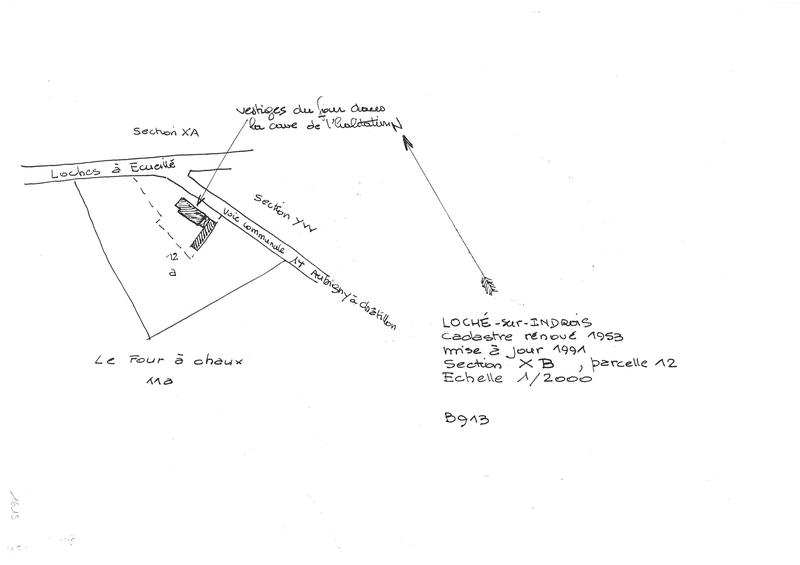 vestiges du four dans
la cave de l'habitation
N
Section XA
Loches à Ecueillé
Section YW
voie communale 14 Aubigny à Châtillon
12
a
Le Four à chaux
11a
LOCHÉ-sur-INDROIS
Cadastre rénové 1953
mise à jour 1991
Section XB , parcelle 12
Echelle 1/2000
B913